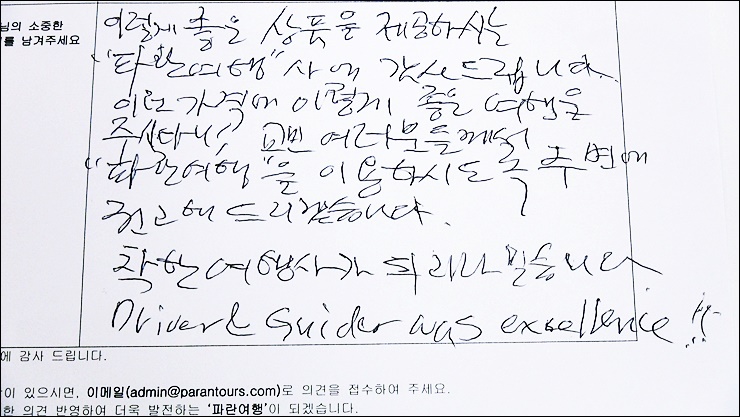 님의 소중한
를 남겨주세요
이렇게 좋은 상품을 제공하시는
"파란여행"사에 감사드립니다.
이런가격에 이렇게 좋은 여행을
주시다니! 교민 여러분들께서
"파란여행"을 이용하시도록 주변에
권고해 드리겠습니다.
착한여행사가 되리라 믿습니다
Driver & Guider was excellence !!
에 감사 드립니다.
이 있으시면, 이메일(admin@parantours.com)로 의견을 접수하여 주세요.
한 의견 반영하여 더욱 발전하는 '파란여행'이 되겠습니다.